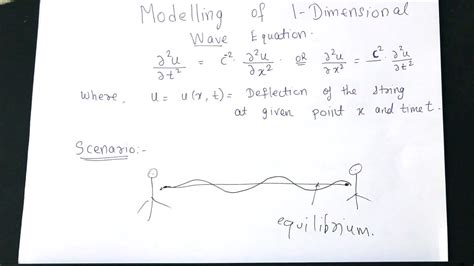 Modelling of 1-Dimensional
Wave Equation.
∂²u/∂t² = c² · ∂²u/∂x² OR ∂²u/∂x² = c⁻² · ∂²u/∂t²
where, u = u(x,t) = Deflection of the string
at given point x and time t.
Scenario:-
equilibrium.